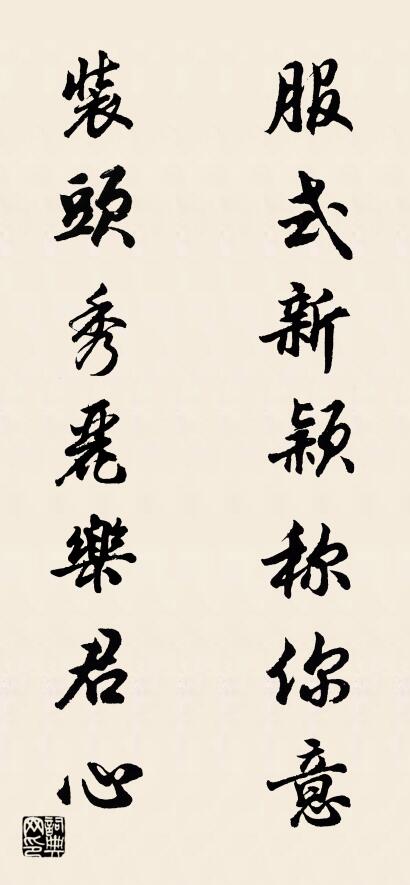 服式新颖称你意
裝頭秀麗樂君心
詞典网印